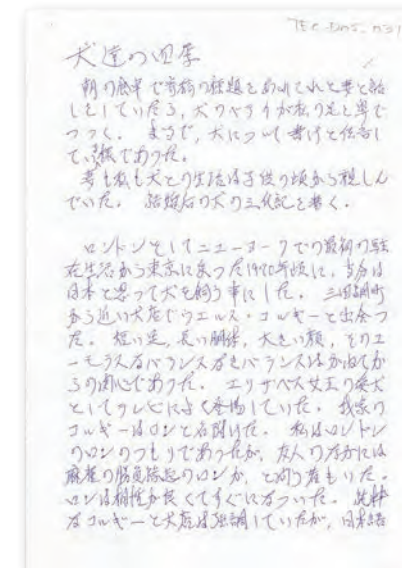 TEC-DMS-031
犬達の四季
朝の食卓で寄稿の話題をあれこれと妻と話
しをしていたら、犬のベリイが私の足を鼻で
つつく。まるで、犬について書けと伝言し
ている様であった。
妻も私も犬との生活は子供の頃から親しん
でいた。結婚后の犬の三代記を書く。
ロンドンそしてニューヨークでの最初の駐
在生活から東京に戻った1970年頃に、当分は
日本と思って犬を飼う事にした。三田綱町
から近い犬店でウエルス・コルギーと出会っ
た。短い足、長い胴体、大きい顔、そのユ
ーモラスなバランスアンバランスはかねてか
らの関心であった。エリザベス女王の愛犬
としてテレビによく登場していた。我家の
コルギーはロンと名附けた。私はロンドン
のロンのつもりであったが、友人のなかには
麻雀の勝負のロンか、と問う者もいた。
ロンは相性が良くてすぐになついた。純粋
なコルギーと犬店は強調していたが、日本